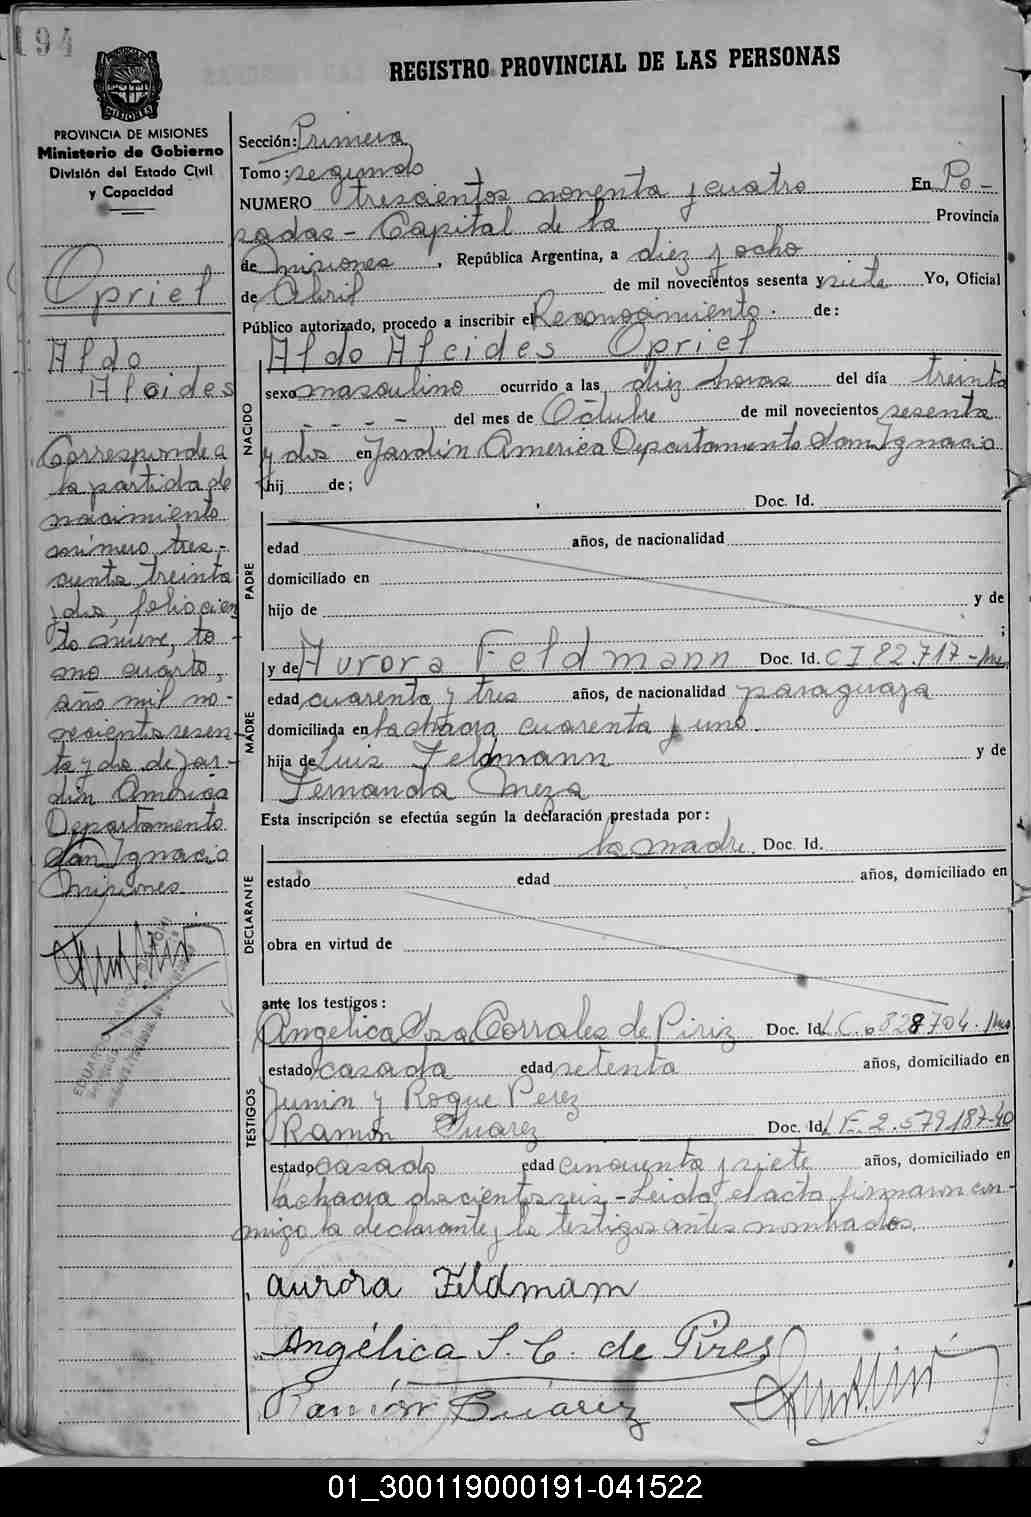 194
PROVINCIA DE MISIONES
Ministerio de Gobierno
División del Estado Civil
y Capacidad
Opriel
Aldo
Alcides
Corresponde a
la partida de
nacimiento
número tres-
cienta treinta
y dos, folio cien
to nueve, to-
mo cuarto,
año mil no-
vecientos sesen-
ta y dos de Jar-
dín América
Departamento
San Ignacio
Misiones
REGISTRO PROVINCIAL DE LAS PERSONAS
Sección: Primera
Tomo: segundo
NUMERO trescientos noventa y cuatro En Po-
sadas - Capital de la Provincia
de Misiones, República Argentina, a diez y ocho
de Abril de mil novecientos sesenta y siete Yo, Oficial
Público autorizado, procedo a inscribir el Reconocimiento. de:
Aldo Alcides Opriel
NACIDO
sexo masculino ocurrido a las diez horas del día treinta
- - - - del mes de Octubre de mil novecientos sesenta
y dos en Jardín América Departamento San Ignacio
hij de;
Doc. Id.
PADRE
edad años, de nacionalidad
domiciliado en
hijo de y de
;
MADRE
y de Aurora Feldmann Doc. Id. CI 82.717-Mnes
edad cuarenta y tres años, de nacionalidad paraguaya
domiciliada en la chacra cuarenta y uno.
hija de Luis Feldmann y de
Fernanda Meza
Esta inscripción se efectúa según la declaración prestada por:
la madre. Doc. Id.
DECLARANTE
estado edad años, domiciliado en
obra en virtud de
ante los testigos:
TESTIGOS
Angélica Sosa Corrales de Piriz Doc. Id. L.C. 6828704. Mnes
estado casada edad setenta años, domiciliado en
Junin y Roque Perez
Ramón Suarez Doc. Id. L.E. 2.579.187-40
estado casado edad cincuenta y siete años, domiciliado en
la chacra doscientos seis - Leida el acta firmaron con-
migo la declarante y los testigos antes nombrados.
aurora Feldmam
Angélica S. C. de Pires
Ramón Suárez
01_300119000191-041522